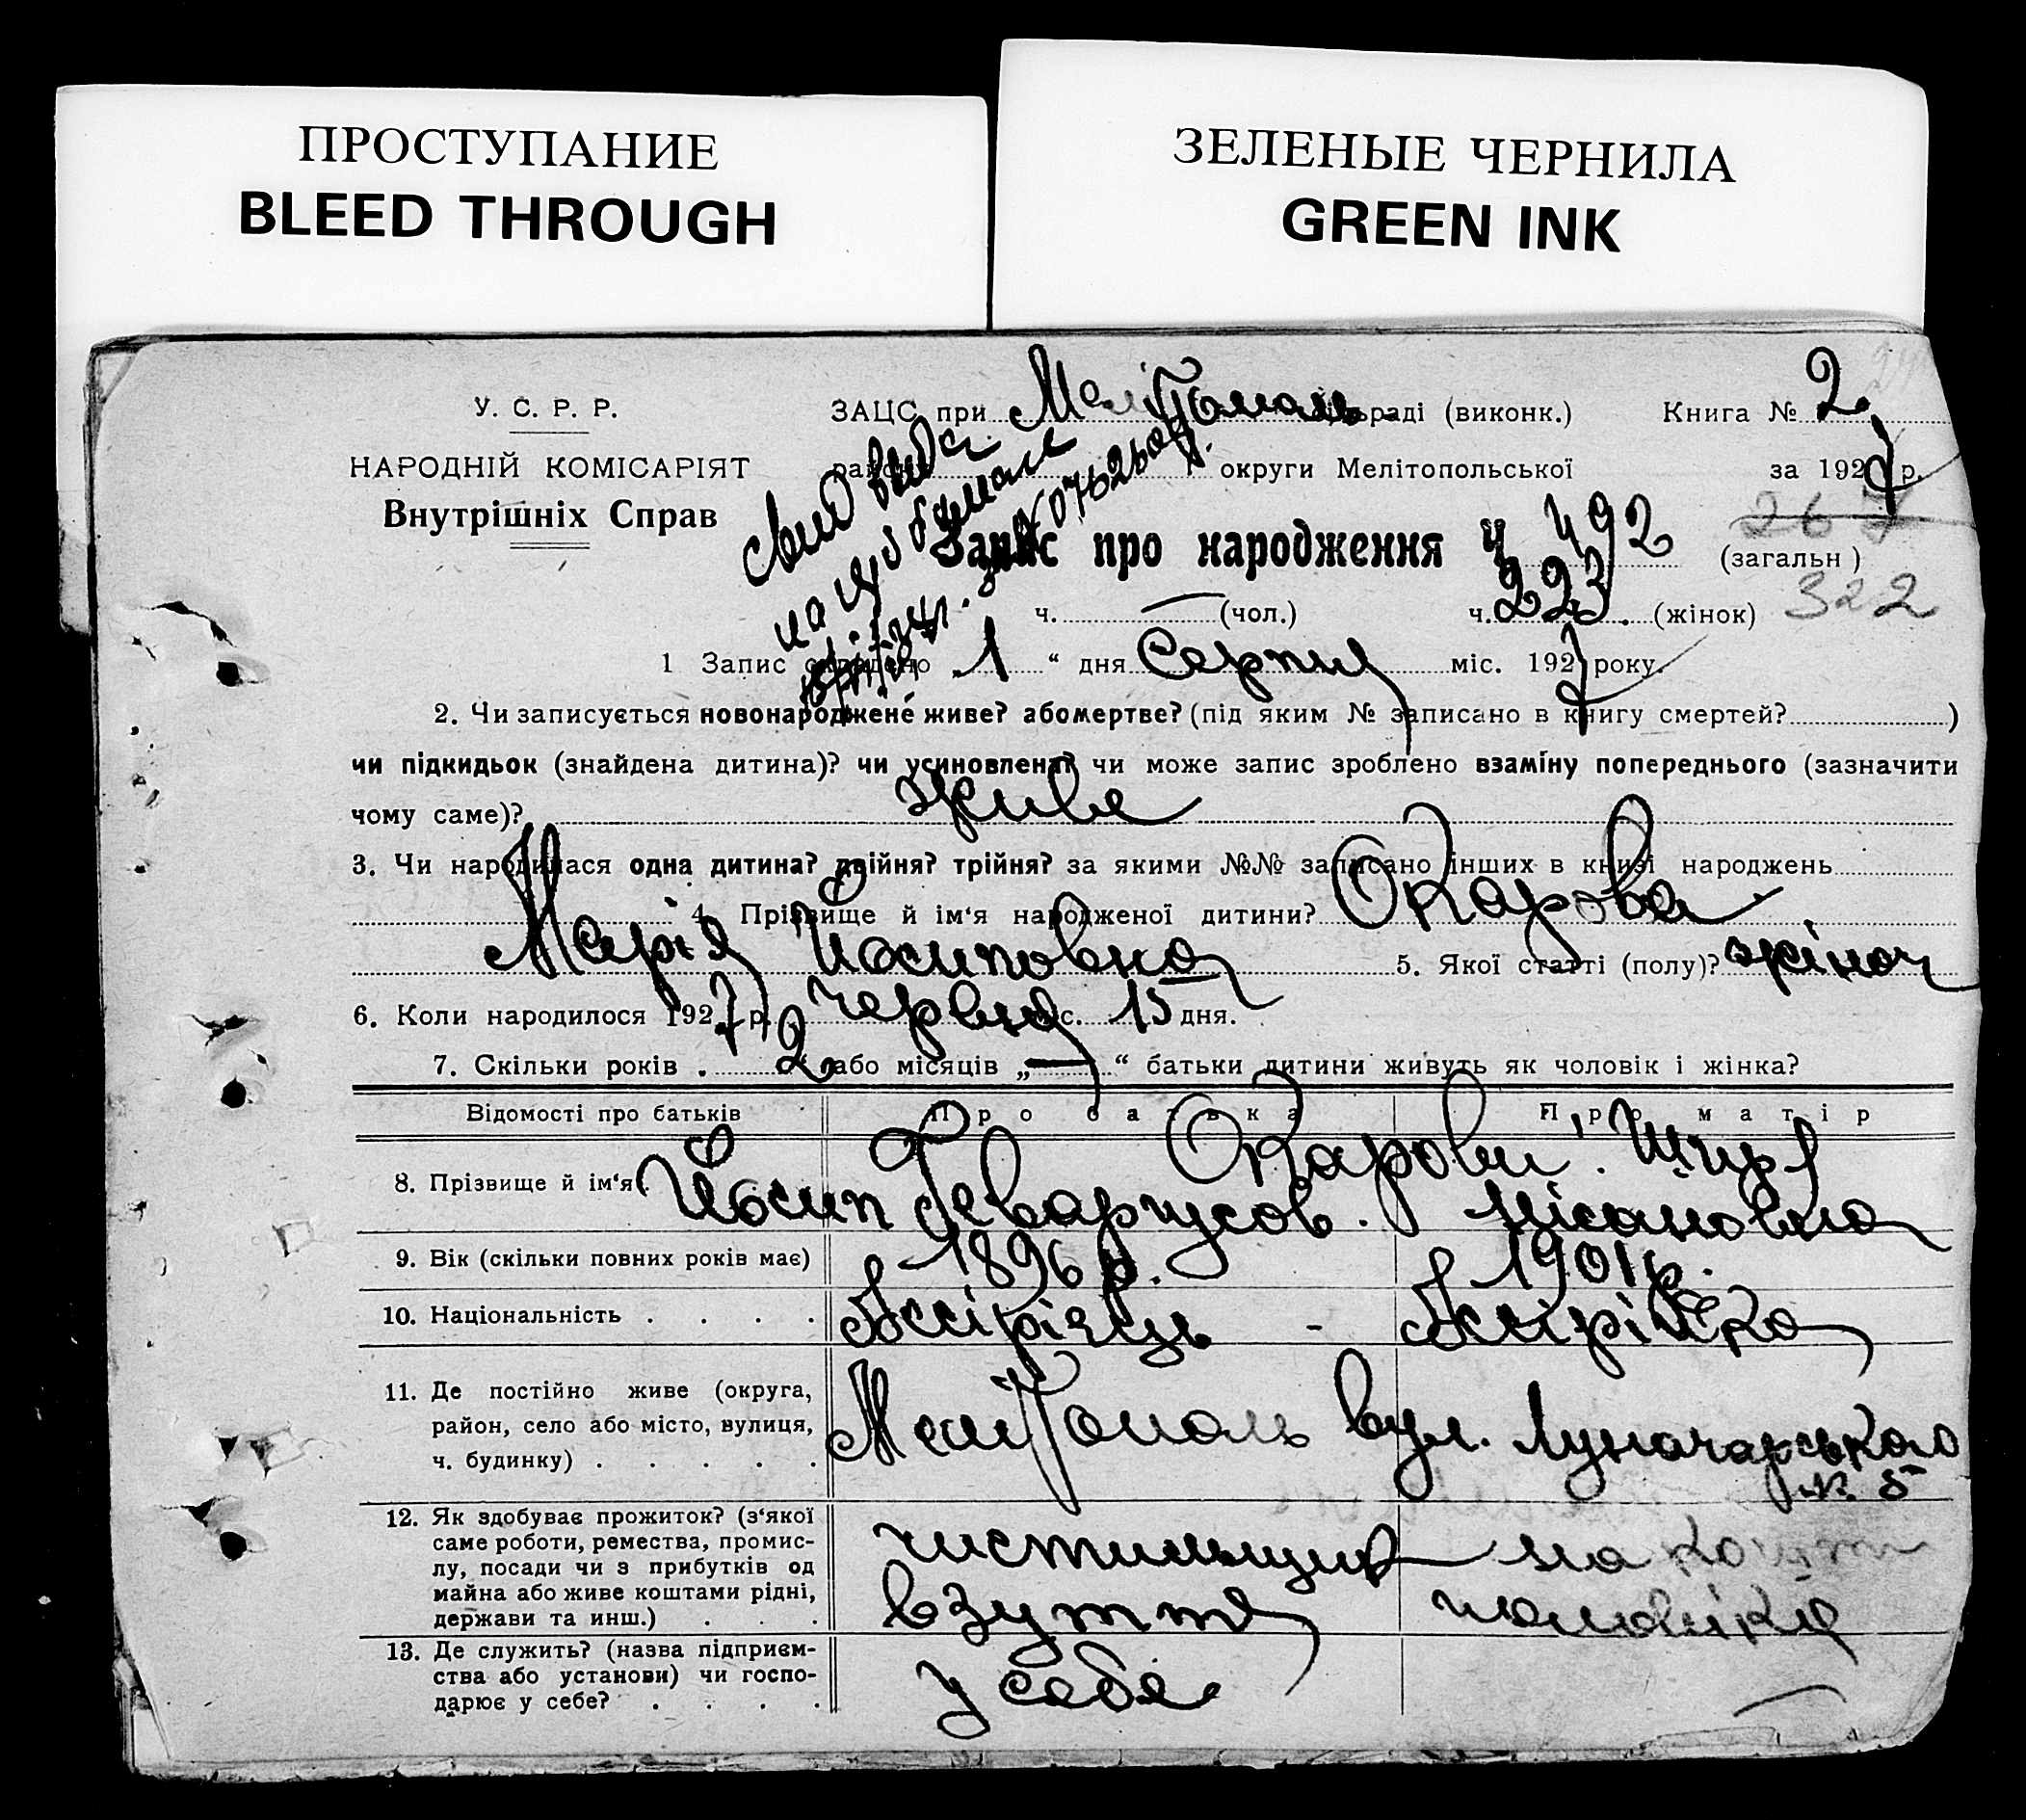 ПРОСТУПАНИЕ
BLEED THROUGH
ЗЕЛЕНЫЕ ЧЕРНИЛА
GREEN INK
У. С. Р. Р.
НАРОДНІЙ КОМІСАРІЯТ
Внутрішніх Справ
ЗАЦС при Мелітополь раді (виконк.) Книга № 2
округи Мелітопольської за 1927 р.
Запис про народження ч 492 (загальн)
322
ч. — (чол.) ч. 223. (жінок)
1 Запис складено 1 “ дня Серпня міс. 1927 року.
2. Чи записується новонароджене живе? або мертве? (під яким № записано в книгу смертей? )
чи підкидьок (знайдена дитина)? чи усиновлена? чи може запис зроблено взаміну попереднього (зазначити
чому саме)? живе
3. Чи народилася одна дитина? двійня? трійня? за якими №№ записано інших в книзі народжень
4. Прізвище й ім‘я народженої дитини?
Марія Йосиповна 5. Якої статті (полу)? жіноч
6. Коли народилося 1927 р. червня міс. 15 дня.
7. Скільки років . 2 “ або місяців „ — “ батьки дитини живуть як чоловік і жінка?
Відомості про батьків Про батька Про матір
8. Прізвище й ім‘я . Йосип
9. Вік (скільки повних років має) 1896 р. 1901 р.
10. Національність . . . . Ассірієць - Ассірійка
11. Де постійно живе (округа,
район, село або місто, вулиця,
ч. будинку) . . . . . Мелітополь вул. Луначарського
№ 5
12. Як здобуває прожиток? (з‘якої
саме роботи, ремества, промис-
лу, посади чи з прибутків од
майна або живе коштами рідні,
держави та инш.) . . .
чистильщик взуття
на кошти чоловіка
13. Де служить? (назва підприєм-
ства або установи) чи госпо-
дарює у себе? . . . .
у себе —